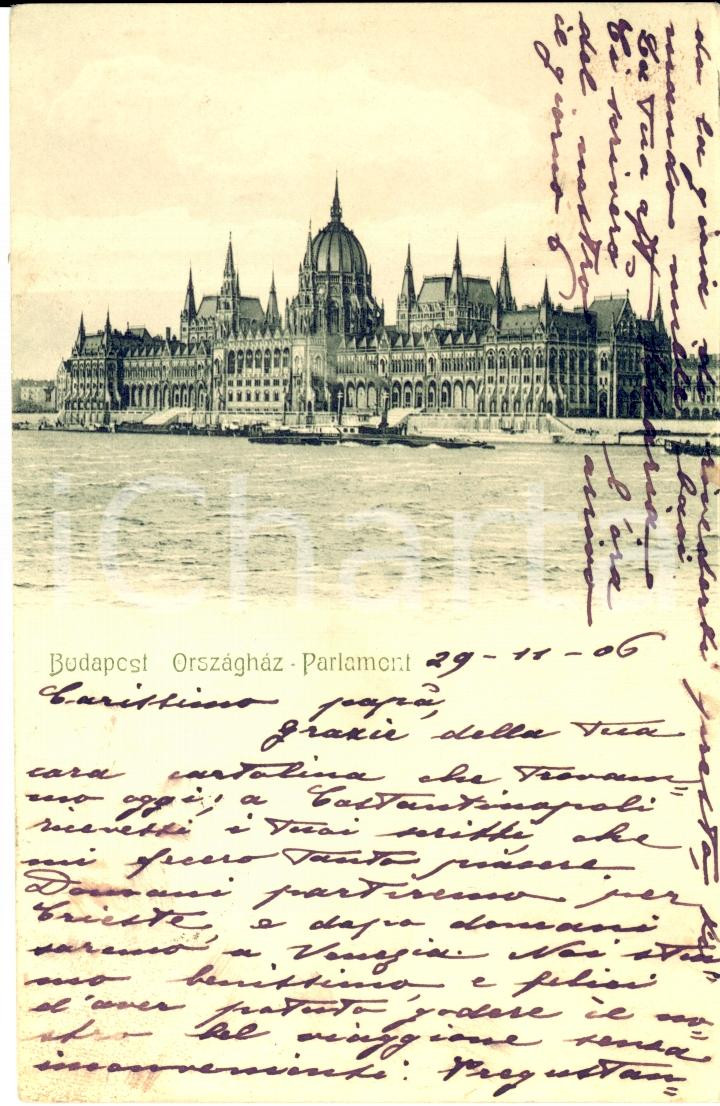 Budapest Országház - Parlament 29-11-06
Carissimo papà,
grazie della tua
cara cartolina che trovam=
mo oggi; a Costantinopoli
ricevetti i tuoi scritti, che
mi fecero tanto piacere
Domani partiremo per
Trieste, e dopo domani
saremo a Venezia. Noi stia
mo benissimo, e felici
d'aver potuto godere il no=
stro bel viaggione senza
inconvenienti. Pregustan=
do la gioia di rivederti presto,
mando mille baci
La tua aff.
Ti scriverò l'ora
del nostro arrivo
il giorno 6
iCharta